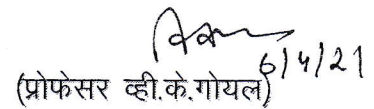 6/4/21
(प्रोफेसर व्ही.के.गोयल)